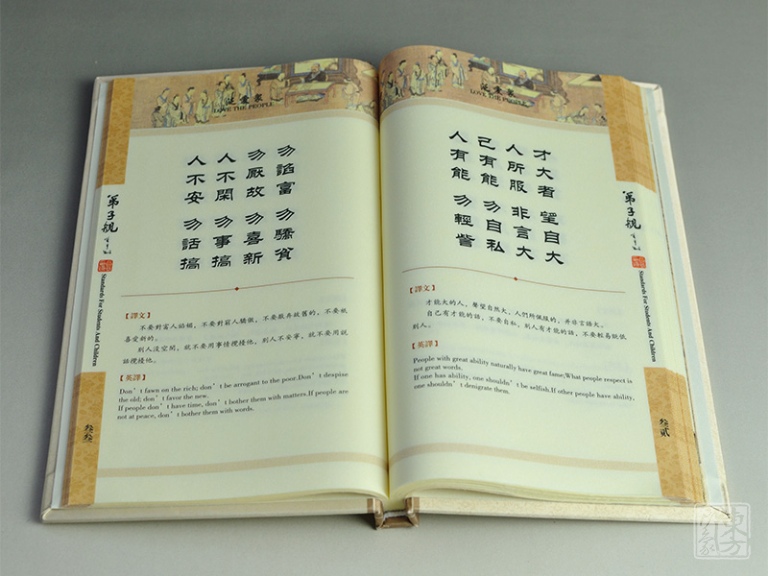 泛愛眾
LOVE THE PEOPLE
才大者 望自大
人所服 非言大
己有能 勿自私
人有能 勿輕訾
【譯文】
才能大的人，聲望自然大，人們所佩服的，並非言語大。
自己有才能的話，不要自私，別人有才能的話，不要輕易詆毀
別人。
【英譯】
People with great ability naturally have great fame;What people respect is
not great words.
If one has ability, one shouldn't be selfish.If other people have ability,
one shouldn't denigrate them.
弟子規
Standards For Students And Children
叁貳
泛愛眾
LOVE THE PEOPLE
勿諂富 勿驕貧
勿厭故 勿喜新
人不閑 勿事搞
人不安 勿話搞
【譯文】
不要對富人諂媚，不要對窮人驕傲，不要厭棄故舊的，不要
喜愛新的。
別人沒空閑，就不要用事情攪擾他，別人不安寧，就不要用說
話攪擾他。
【英譯】
Don't fawn on the rich; don't be arrogant to the poor.Don't despise
the old; don't favor the new.
If people don't have time, don't bother them with matters.If people are
not at peace, don't bother them with words.
弟子規
Standards For Students And Children
叁叁
東方